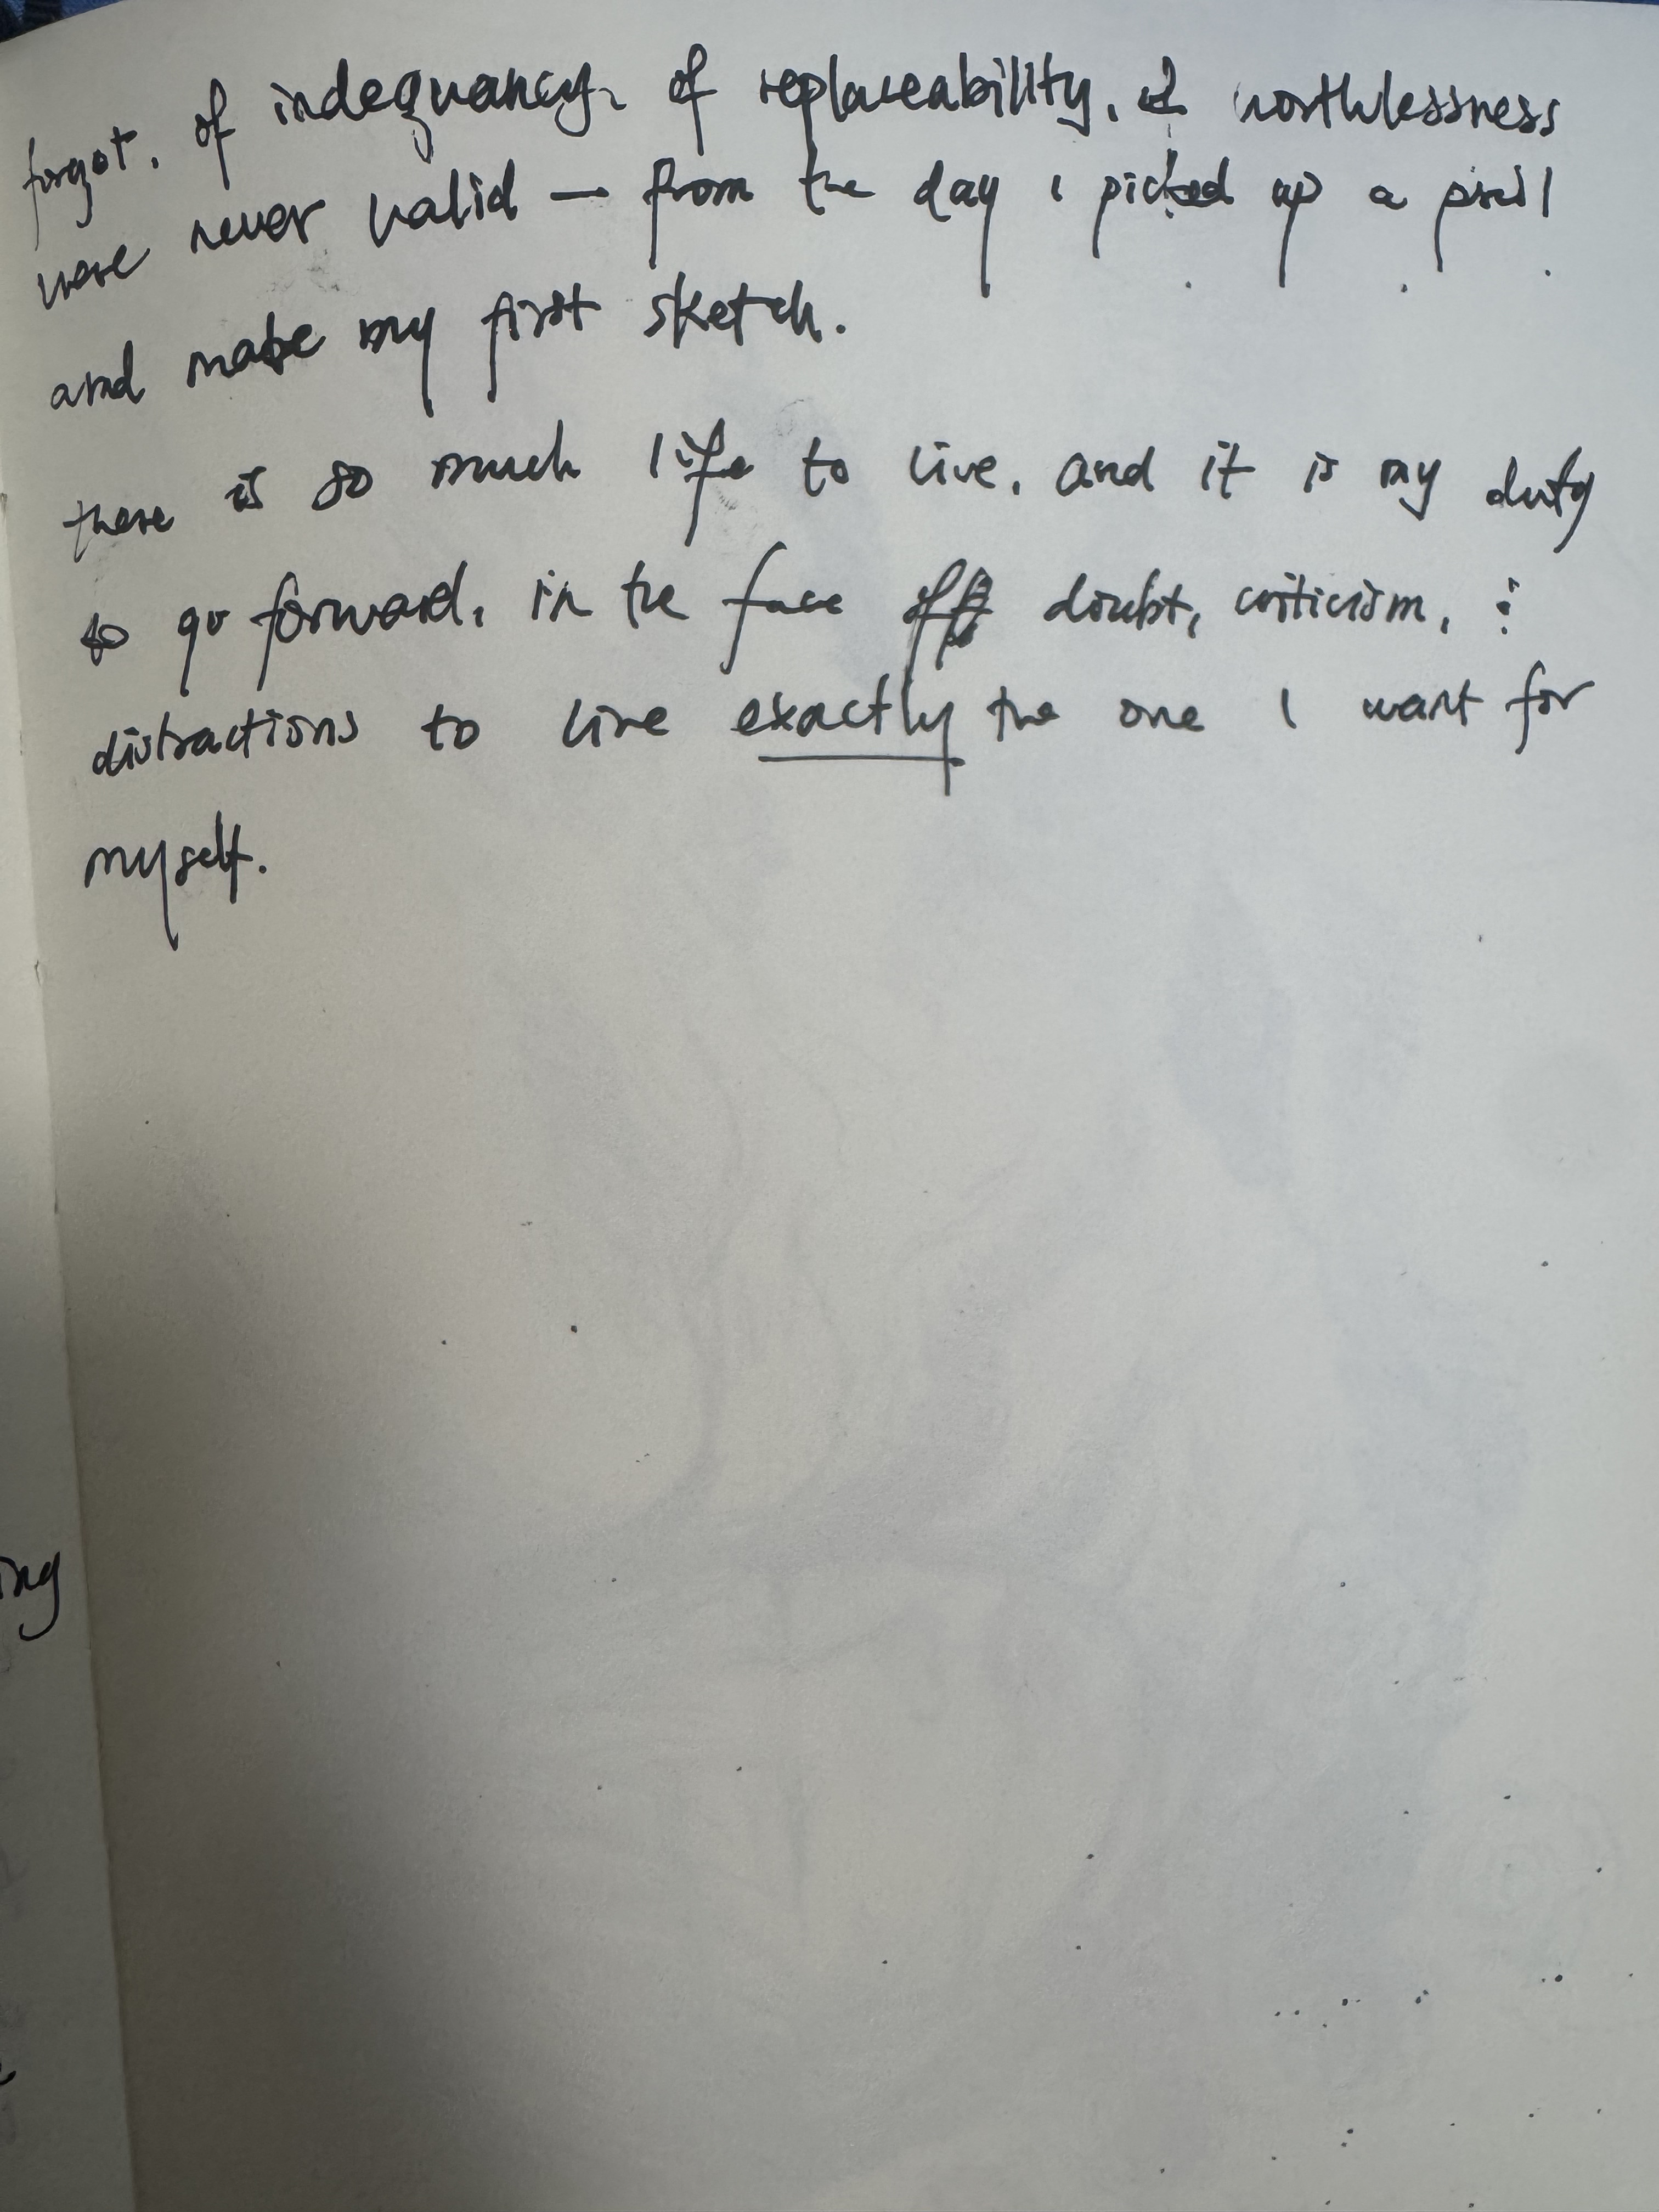 forgot, of indequancy, of replaceability, of worthlessness
were never valid — from the day i picked up a pncil
and made my first sketch.
there is so much life to live, and it is my duty
to go forward, in the face of doubt, criticism, :
distractions to live exactly the one I want for
myself.
ing